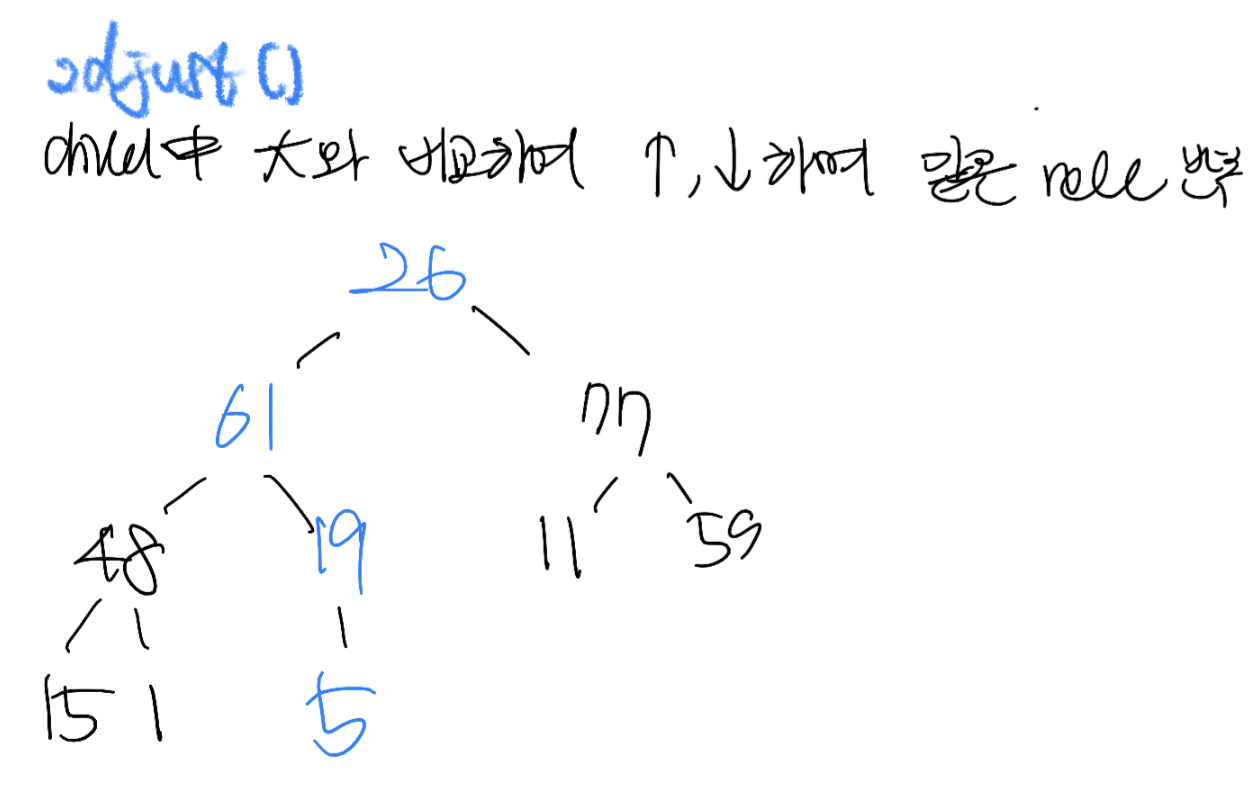 adjust()
child中 大와 비교하여 ↑,↓하여 같은 rule 반복
26
61 77
48 19 11 59
15 1 5